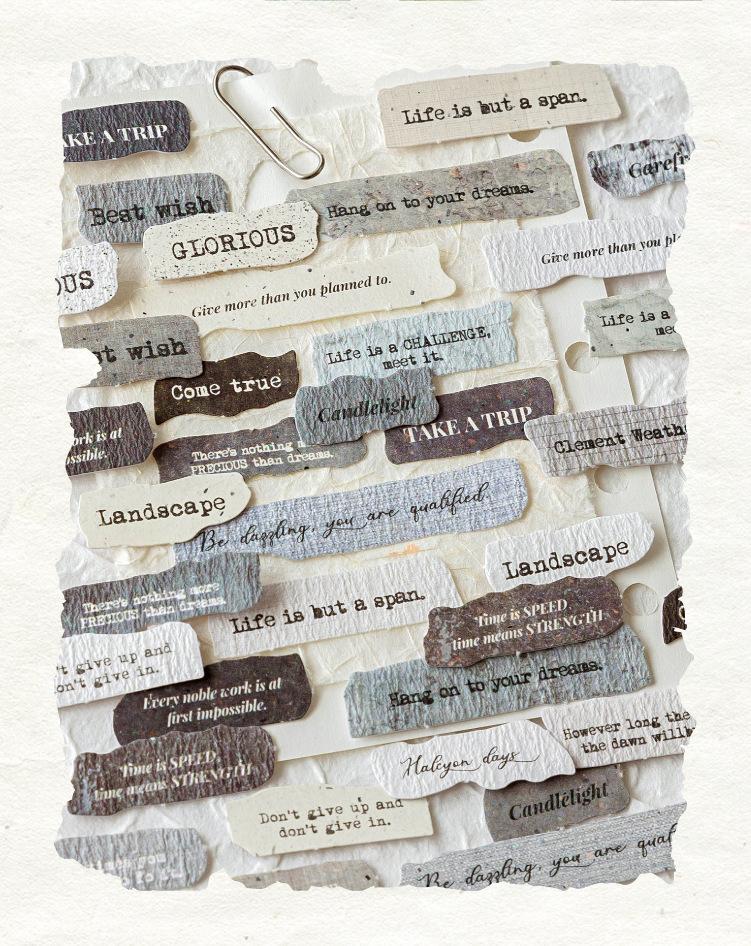 Life is but a span.
TAKE A TRIP
Best wish
Hang on to your dreams.
GLORIOUS
Give more than you pl
OUS
Give more than you planned to.
Life is a
mee
st wish
Life is a CHALLENGE,
meet it.
Come true
Candlelight
TAKE A TRIP
ork is at
ssible.
Clement Weath
There's nothing m
PRECIOUS than dreams.
Landscape
Be dazzling, you are qualified.
Landscape
There's nothing more
PRECIOUS than dreams.
Life is but a span.
Time is SPEED
time means STRENGTH
't give up and
on't give in.
Every noble work is at
first impossible.
Hang on to your dreams.
However long the
the dawn will
Time is SPEED
time means STRENGTH
Halcyon days
Candlelight
Don't give up and
don't give in.
Be dazzling, you are qual